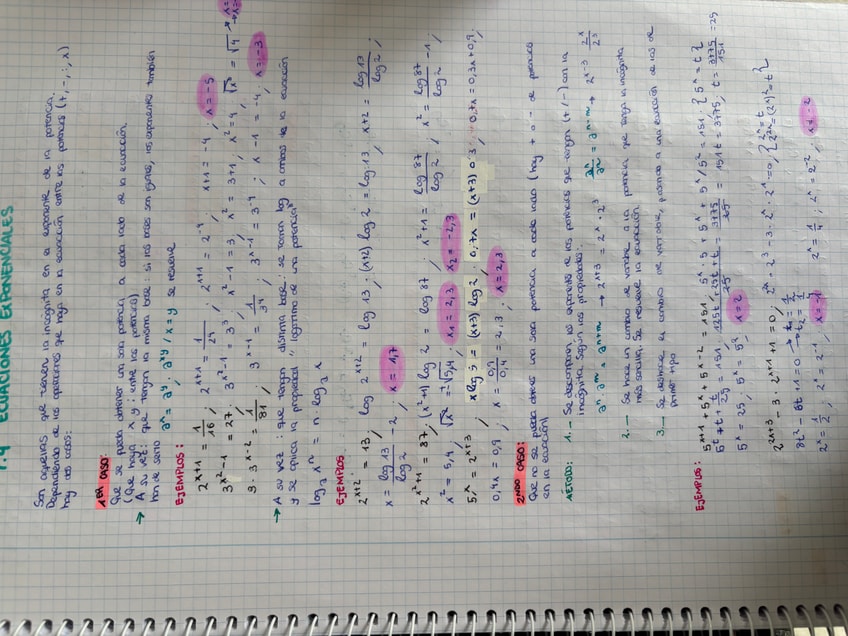 7.4 ECUACIONES EXPONENCIALES
Son aquellas que tienen la incógnita en el exponente de la potencia.
Dependiendo de las operaciones que haya en la ecuación entre las potencias (+, -, ·, :)
hay dos casos:
1ER CASO:
Que se pueda obtener una sola potencia a cada lado de la ecuación.
(Que haya x y : entre las potencias)
→ A su vez: que tengan la misma base: si las bases son iguales, los exponentes también
han de serlo
aˣ = aʸ; aˣʸ / x = y se resuelve
EJEMPLOS:
2ˣ⁺¹ = 1/16; 2ˣ⁺¹ = 1/2⁴; 2ˣ⁺¹ = 2⁻⁴; x+1 = -4; x = -5
3^(x²-1) = 27; 3^(x²-1) = 3³; x²-1 = 3; x² = 3+1; x² = 4; √x² = √4
9·3ˣ⁻² = 1/81; 3ˣ⁻¹ = 1/3⁴; 3ˣ⁻¹ = 3⁻⁴; x-1 = -4; x = -3
→ A su vez: que tengan distinta base: se toman log a ambos de la ecuación
y se aplica la propiedad "logaritmo de una potencia"
log₂ xⁿ = n log₂ x
EJEMPLOS
2ˣ⁺² = 13; log 2ˣ⁺² = log 13; (x+2) log 2 = log 13; x+2 = log 13/log 2;
x = log 13/log 2 - 2; x = 1,7
2^(x²+1) = 87; (x²+1) log 2 = log 87; x²+1 = log 87/log 2; x² = log 87/log 2 - 1;
x² = 5,4; √x² = ±√5,4; x₁ = 2,3 x₂ = -2,3
5ˣ = 2ˣ⁺³; x log 5 = (x+3) log 2; 0,7x = (x+3) 0,3; 0,7x = 0,3x + 0,9;
0,4x = 0,9; x = 0,9/0,4 = 2,3; x = 2,3
2NDO CASO:
Que no se pueda obtener una sola potencia a cada lado (hay + o - de potencias
en la ecuación)
MÉTODO: 1.- Se descomponen los exponentes de las potencias que tengan (+/-) con la
incógnita según las propiedades.
aⁿ·aᵐ = aⁿ⁺ᵐ → 2ˣ⁺³ = 2ˣ·2³ aⁿ/aᵐ = aⁿ⁻ᵐ → 2ˣ⁻³ 2ˣ/2³
2.- Se hace un cambio de variable a la potencia que tenga la incógnita
más sencilla. Se resuelve la ecuación.
3.- Se deshace el cambio de variable, pasando a una ecuación de las de
primer tipo
EJEMPLOS: 5ˣ⁺¹ + 5ˣ + 5ˣ⁻² = 151; 5ˣ·5 + 5ˣ + 5ˣ/5² = 151 { 5ˣ = t {
5t + t + t/25 = 151; 125t/25 + 25t + t = 3775/25; 151t = 3775; t = 3775/151 = 25
5ˣ = 25; 5ˣ = 5²; x = 2
2²ˣ⁺³ - 3·2ˣ⁺¹ + 1 = 0; 2²ˣ·2³ - 3·2ˣ·2 + 1 = 0; { 2ˣ = t 2²ˣ = (2ˣ)² = t² {
8t² - 6t + 1 = 0 → t₁ = 1/2 t₂ = 1/4
2ˣ = 1/2; 2ˣ = 2⁻¹; x = -1 2ˣ = 1/4; 2ˣ = 2⁻²; x = -2